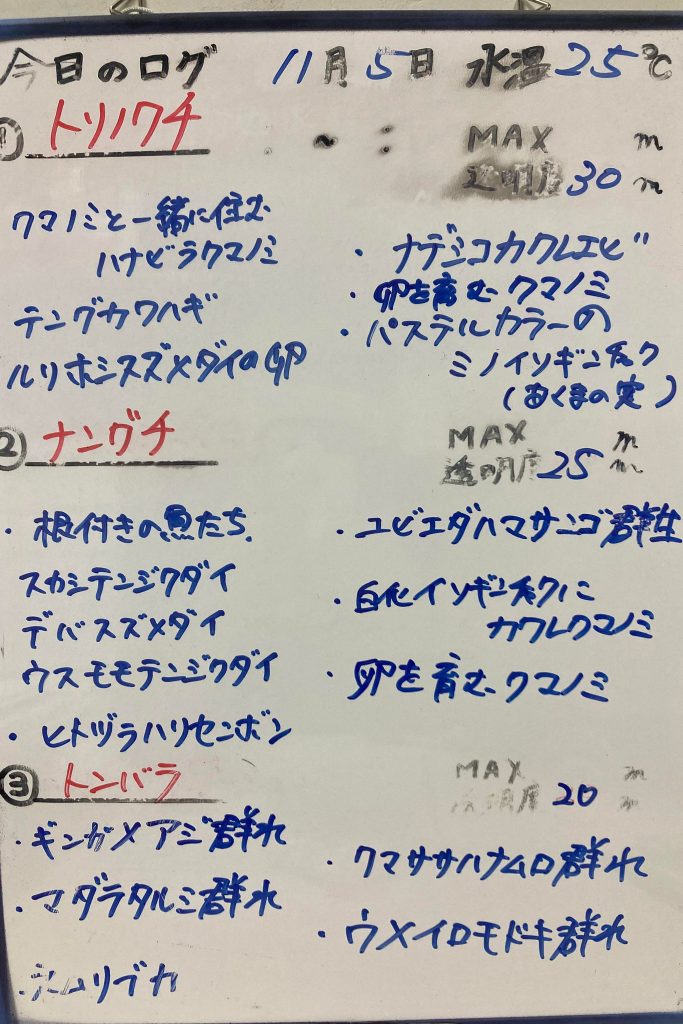 今日のログ 11月5日 水温25℃
① トリノクチ ~ : MAX m
透明度30m
クマノミと一緒に住む
ハナビラクマノミ
テングカワハギ
ルリホシスズメダイの卵
・ナデシコカクレエビ
・卵を育むクマノミ
・パステルカラーの
ミノイソギンチャク
(あくまの実)
② ナングチ MAX m
透明度25m
・根付きの魚たち
スカシテンジクダイ
デバスズメダイ
ウスモモテンジクダイ
・ヒトヅラハリセンボン
・ユビエダハマサンゴ群生
・白化イソギンチャクに
カクレクマノミ
・卵を育むクマノミ
③ トンバラ MAX m
透明度20m
・ギンガメアジ群れ
・マダラタルミ群れ
・ネムリブカ
・クマササハナムロ群れ
・ウメイロモドキ群れ